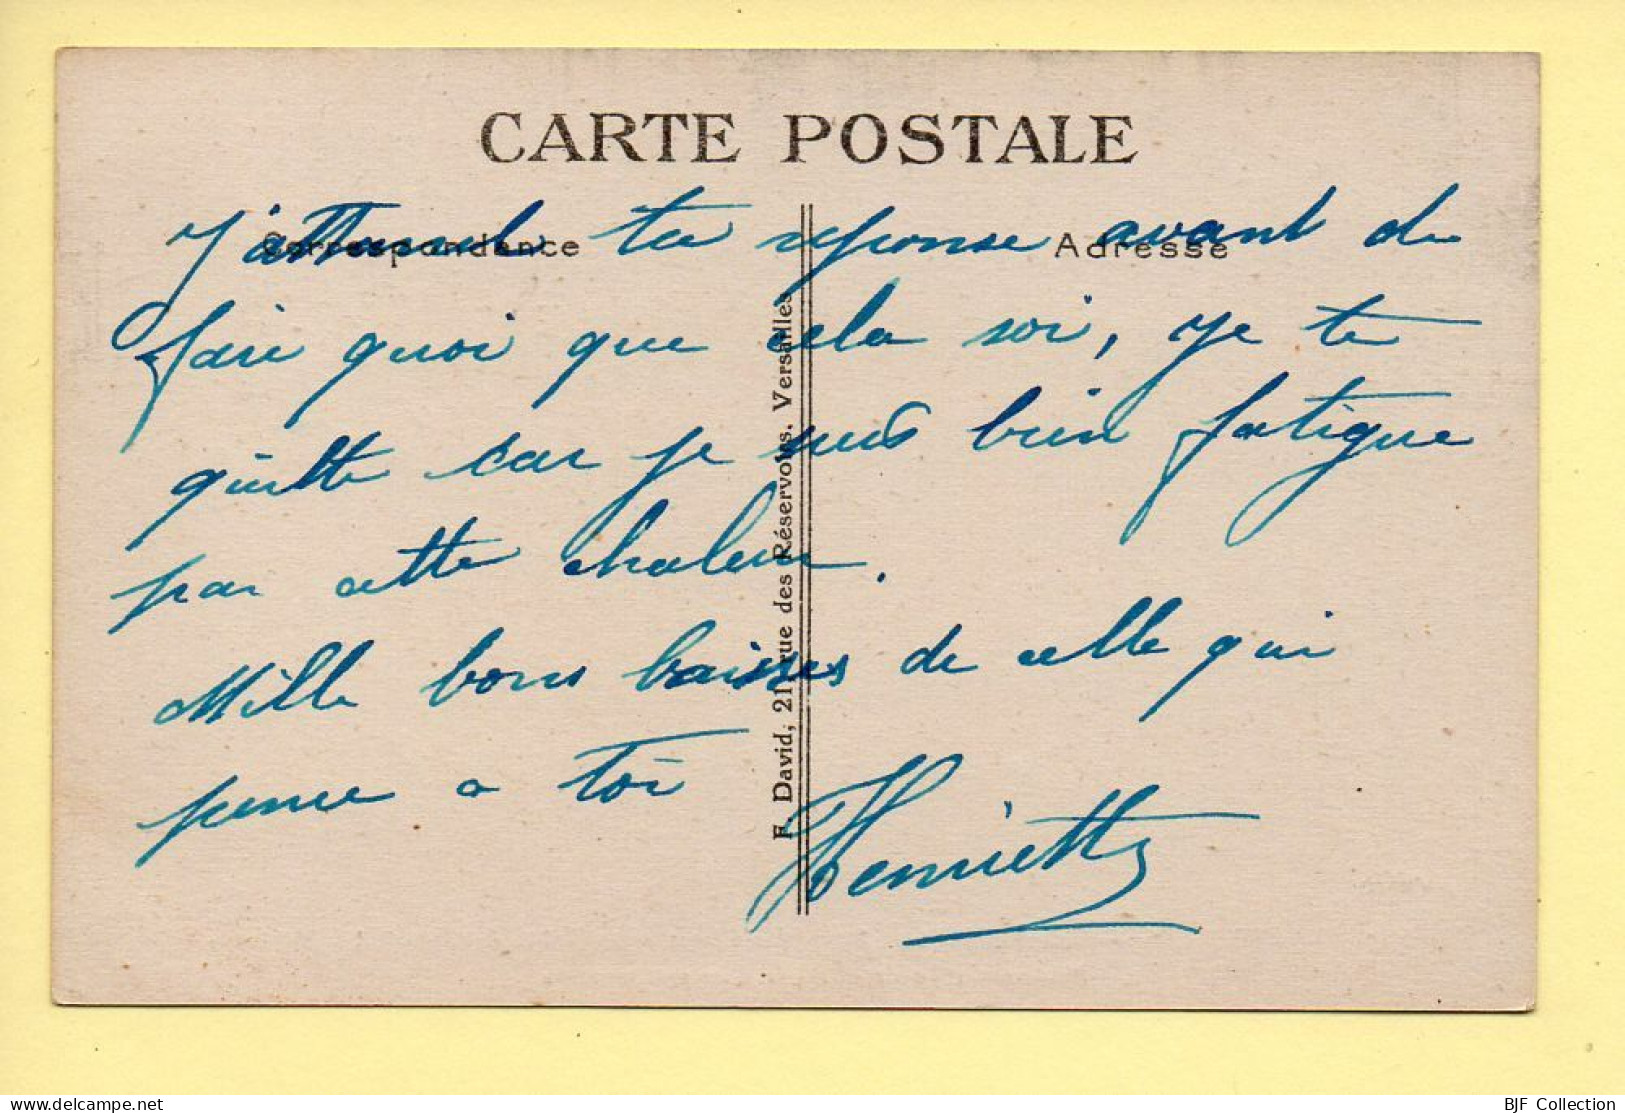 CARTE POSTALE
Correspondance
Adresse
J'attend ta réponse avant de
faire quoi que cela soi, je te
quitte car je suis bien fatigue
par cette chaleur.
Mille bons baisses de celle qui
pense a toi
Henriette
F. David, 21, rue des Réservoirs, Versailles
BJF Collection